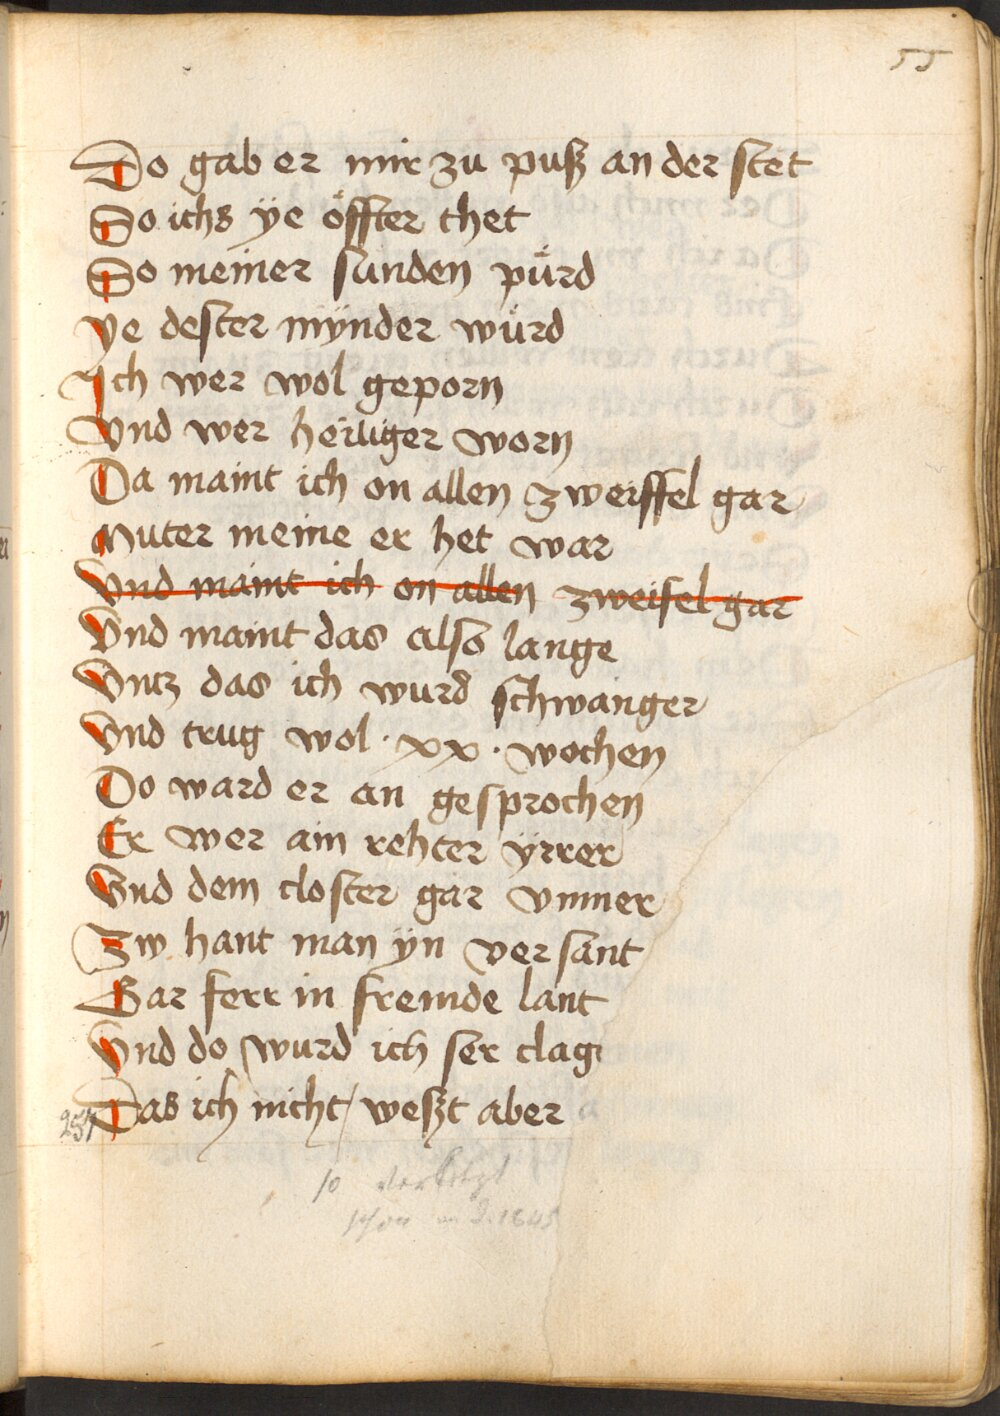 55
Do gab er mir zu puß an der stet
So ichs ÿe öffter thet
So meiner sunden pürd
ye dester mÿnder würd
Ich wer wol geporn
Vnd wer heiliger worn
Da maint ich on allen zweiffel gar
Muter meine er het war
Vnd maint ich on allen zweifel gar
Vnd maint das also lange
Vntz das ich wurd schwanger
Vnd trug wol · xx · wochen
Do ward er an gesprochen
Er wer ain rehter ÿrrer
Vnd dem closter gar vnmer
Zw hant man ÿn ver sant
Gar ferr in fremde lant
Vnd do wurd ich ser clag
Das ich nicht / weßt aber
257
so verletzt
schon 1845